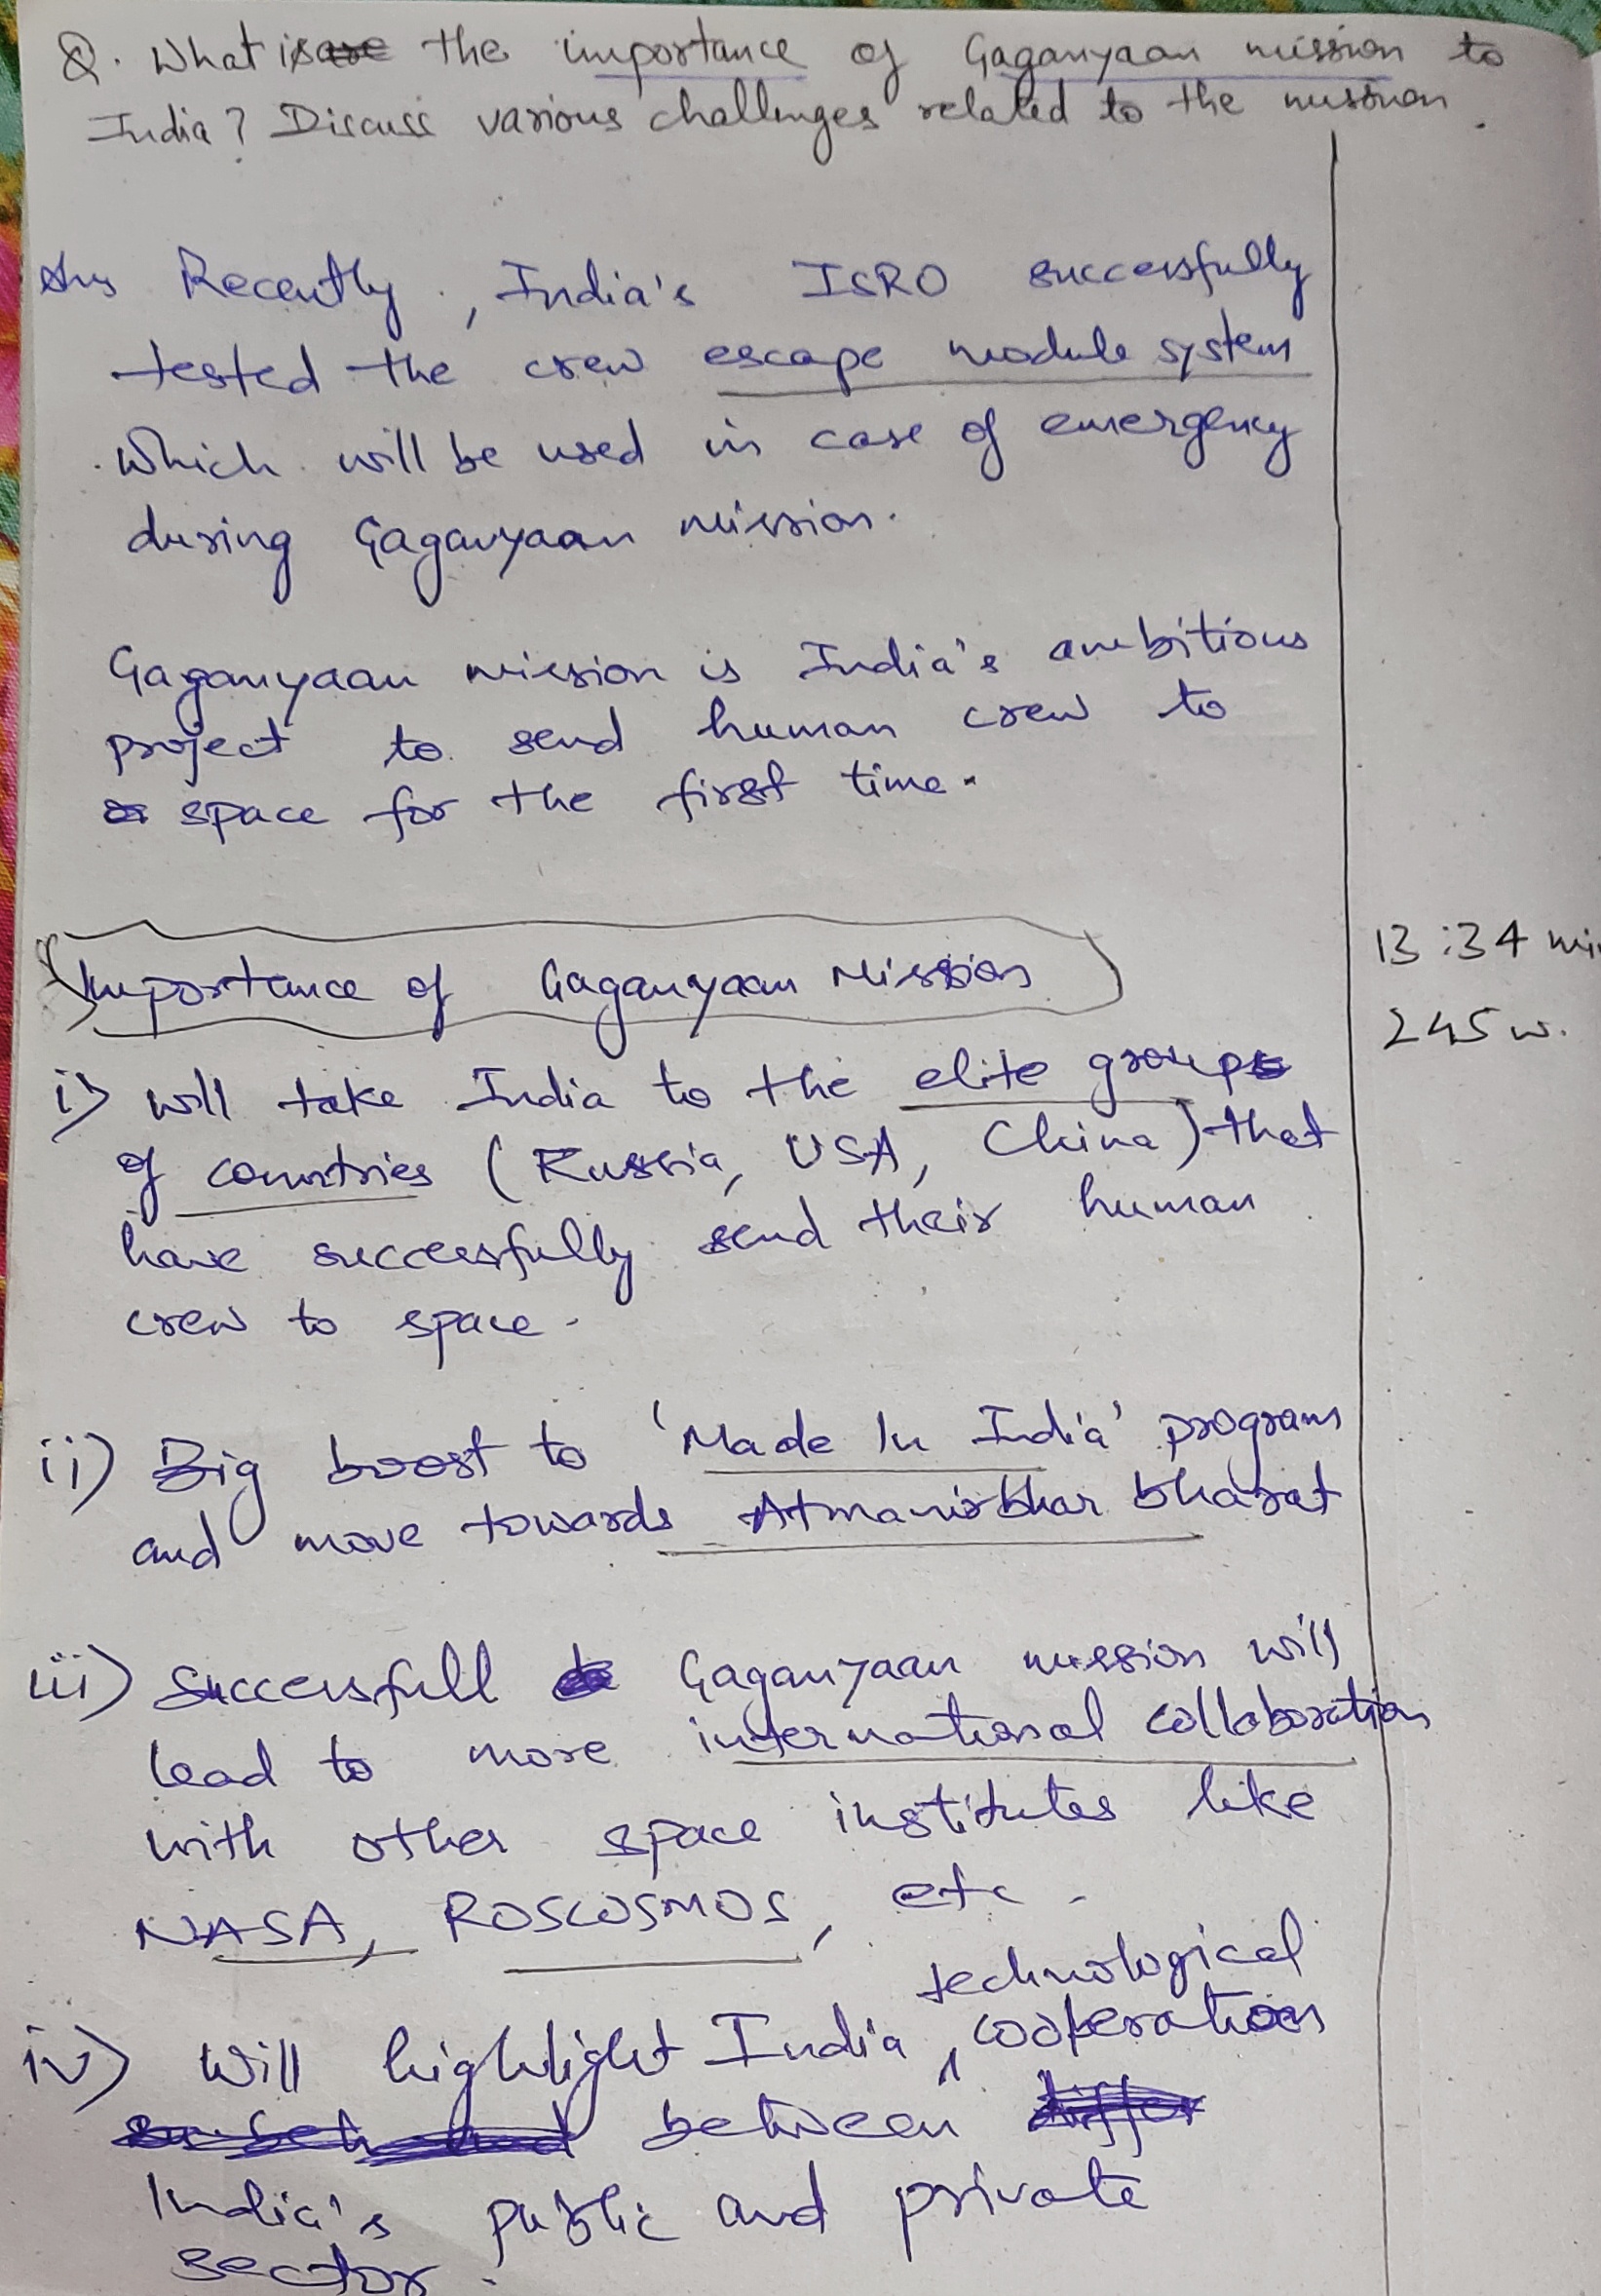 Q. What is the importance of Gaganyaan mission to
India? Discuss various challenges related to the mission.
Ans Recently, India's ISRO successfully
tested the crew escape module system
which will be used in case of emergency
during Gaganyaan mission.
Gaganyaan mission is India's ambitious
project to send human crew to
space for the first time.
Importance of Gaganyaan Mission
i) will take India to the elite group
of countries (Russia, USA, China) that
have successfully send their human
crew to space.
13:34 mi
245 w.
ii) Big boost to 'Made In India' program
and move towards Atmanirbhar Bharat
iii) Successfull Gaganyaan mission will
lead to more international collaboration
with other space institutes like
NASA, ROSCOSMOS, etc.
iv) Will highlight India technological cooperation
between
India's public and private
sector.